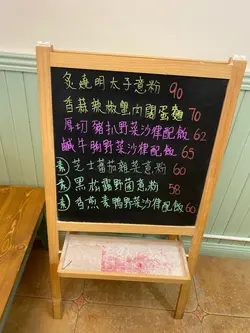 炙燒明太子意粉 90
香蒜辣椒蟹肉闊蛋麵 70
厚切豬扒野菜沙律配飯 62
鹹牛胸野菜沙律配飯 65
素 芝士蕃茄雜菜意粉 60
素 黑松露野菌意粉 58
素 香煎素鴨野菜沙律配飯 60